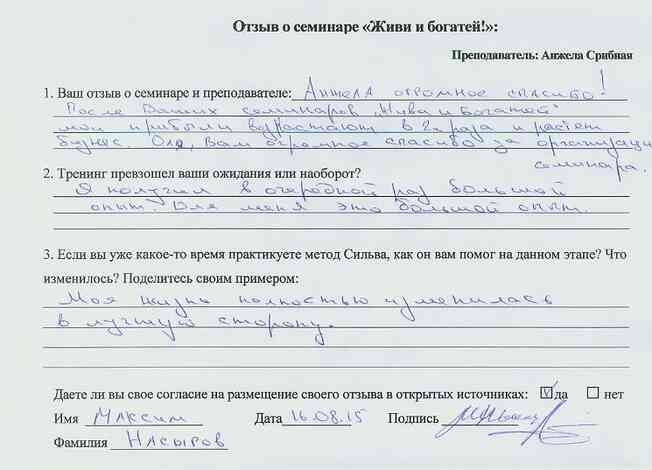 Отзыв о семинаре «Живи и богатей!»:
Преподаватель: Анжела Срибная
1. Ваш отзыв о семинаре и преподавателе: Анжела огромное спасибо!
После Ваших семинаров „Живи и Богатей"
мои прибыли возрастают в 2а раза и растет
бизнес. Оля, Вам огромное спасибо за организаци
семинара.
2. Тренинг превзошел ваши ожидания или наоборот?
Я получил в очередной раз большой
опыт. Для меня это большой опыт.
3. Если вы уже какое-то время практикуете метод Сильва, как он вам помог на данном этапе? Что
изменилось? Поделитесь своим примером:
Моя жизнь полностью изменилась
в лучшую сторону.
Даете ли вы свое согласие на размещение своего отзыва в открытых источниках: V да нет
Имя Максим Дата 16.08.15 Подпись
Фамилия Насыров